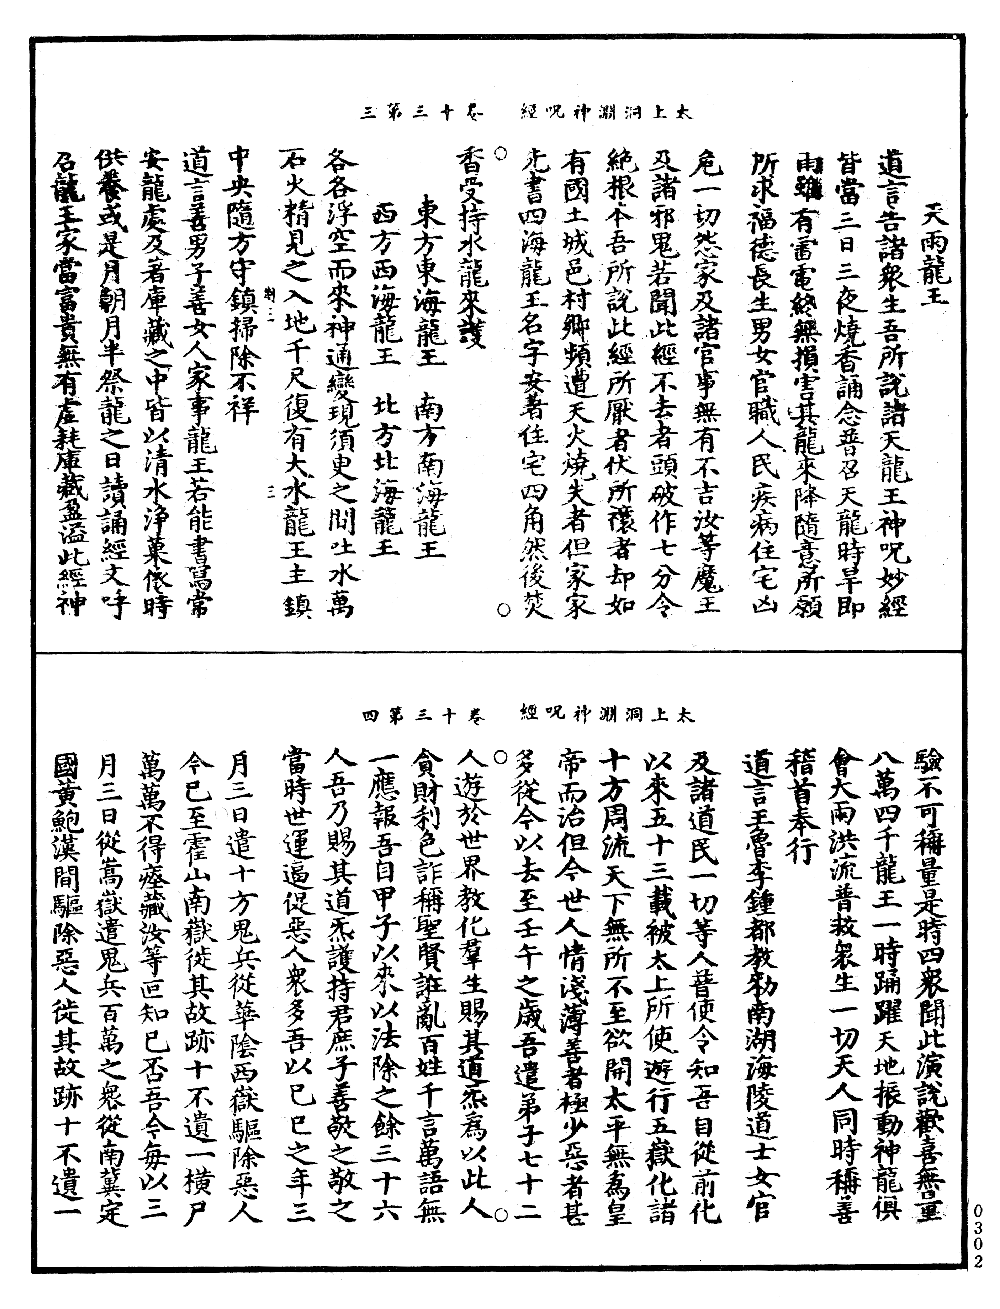 太上洞淵神呪經　卷十三第三
天雨龍王
道言告諸衆生吾所説諸天龍王神呪妙經
皆當三日三夜燒香誦念普召天龍時旱即
雨雖有雷電終無損害其龍來降隨意所願
所求福德長生男女官職人民疾病住宅凶
危一切怨家及諸官事無有不吉汝等魔王
及諸邪鬼若聞此經不去者頭破作七分令
絶根本吾所説此經所厭者伏所禳者却如
有國土城邑村鄉頻遭天火燒失者但家家
先書四海龍王名字安著住宅四角然後焚
香受持水龍來護
東方東海龍王　南方南海龍王
西方西海龍王　北方北海龍王
各各浮空而來神通變現須臾之間吐水萬
石火精見之入地千尺復有大水龍王主鎮
中央隨方守鎮掃除不祥
道言善男子善女人家事龍王若能書寫常
安龍處及著庫藏之中皆以清水淨菓依時
供養或是月朝月半祭龍之日讀誦經文呼
召龍王家當富貴無有虛耗庫藏盈溢此經神
太上洞淵神呪經　卷十三第四
驗不可稱量是時四衆聞此演説歡喜無量
八萬四千龍王一時踊躍天地振動神龍俱
會大雨洪流普救衆生一切天人同時稱善
稽首奉行
道言王魯李鍾都教勑南湖海陵道士女官
及諸道民一切等人普使令知吾自從前化
以來五十三載被太上所使遊行五嶽化諸
十方周流天下無所不至欲開太平無爲皇
帝而治但今世人情淺薄善者極少惡者甚
多從今以去至壬午之歲吾遣弟子七十二
人遊於世界教化羣生賜其道炁爲以此人
貪財利色詐稱聖賢誑亂百姓千言萬語無
一應報吾自甲子以來以法除之餘三十六
人吾乃賜其道炁護持君庶子善敬之敬之
當時世運逼促惡人衆多吾以巳巳之年三
月三日遣十方鬼兵從華陰西嶽驅除惡人
今已至霍山南嶽從其故跡十不遺一横尸
萬萬不得瘞藏汝等叵知已否吾今每以三
月三日從嵩嶽遣鬼兵百萬之衆從南冀定
國黄鮑漠間驅除惡人從其故跡十不遺一
0302